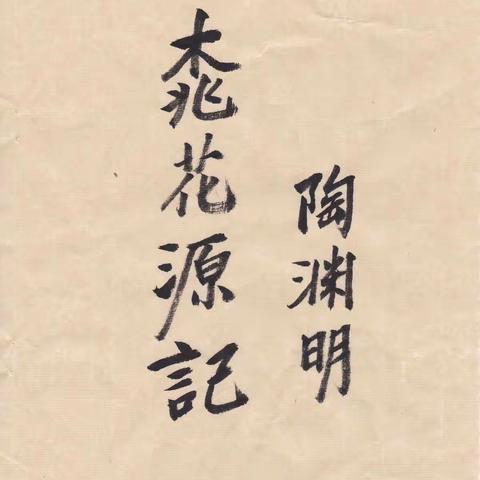 桃花源記
陶渊明